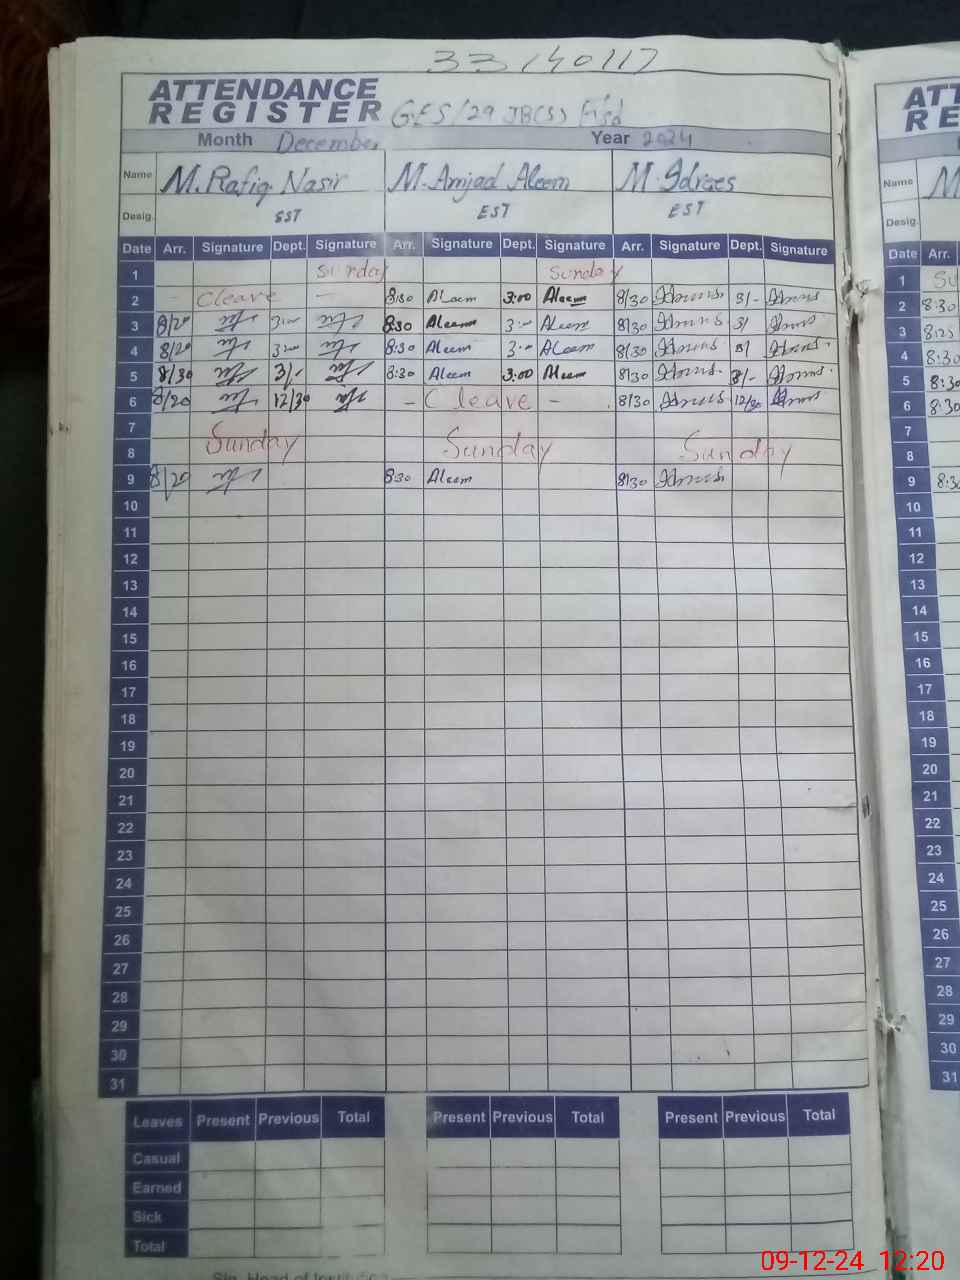 33140117
ATTENDANCE
REGISTER GES/29 JB(S) Fsd
Month December Year 2024
Name M. Rafiq Nasir M. Amjad Aleem M. Idrees
Desig. SST EST EST
Date Arr. Signature Dept. Signature Arr. Signature Dept. Signature Arr. Signature Dept. Signature
1 Sunday Sunday
2 - Cleave - 8:30 Aleem 3:00 Aleem 8/30 3/-
3 8/20 3:00 8:30 Aleem 3:00 Aleem 8/30 3/
4 8/20 3:00 8:30 Aleem 3:00 Aleem 8/30 3/
5 8/30 3/- 8:30 Aleem 3:00 Aleem 8/30 3/-
6 8/20 12/30 - Cleave - 8/30 12/30
7
8 Sunday Sunday Sunday
9 8/20 8:30 Aleem 8/30
10
11
12
13
14
15
16
17
18
19
20
21
22
23
24
25
26
27
28
29
30
31
Leaves Present Previous Total Present Previous Total Present Previous Total
Casual
Earned
Sick
Total
Sig. Head of
ATT
RE
Name M
Desig.
Date Arr.
1 Su
2 8:30
3 8:25
4 8:30
5 8:30
6 8:30
7
8
9 8:30
10
11
12
13
14
15
16
17
18
19
20
21
22
23
24
25
26
27
28
29
30
31
09-12-24 12:20